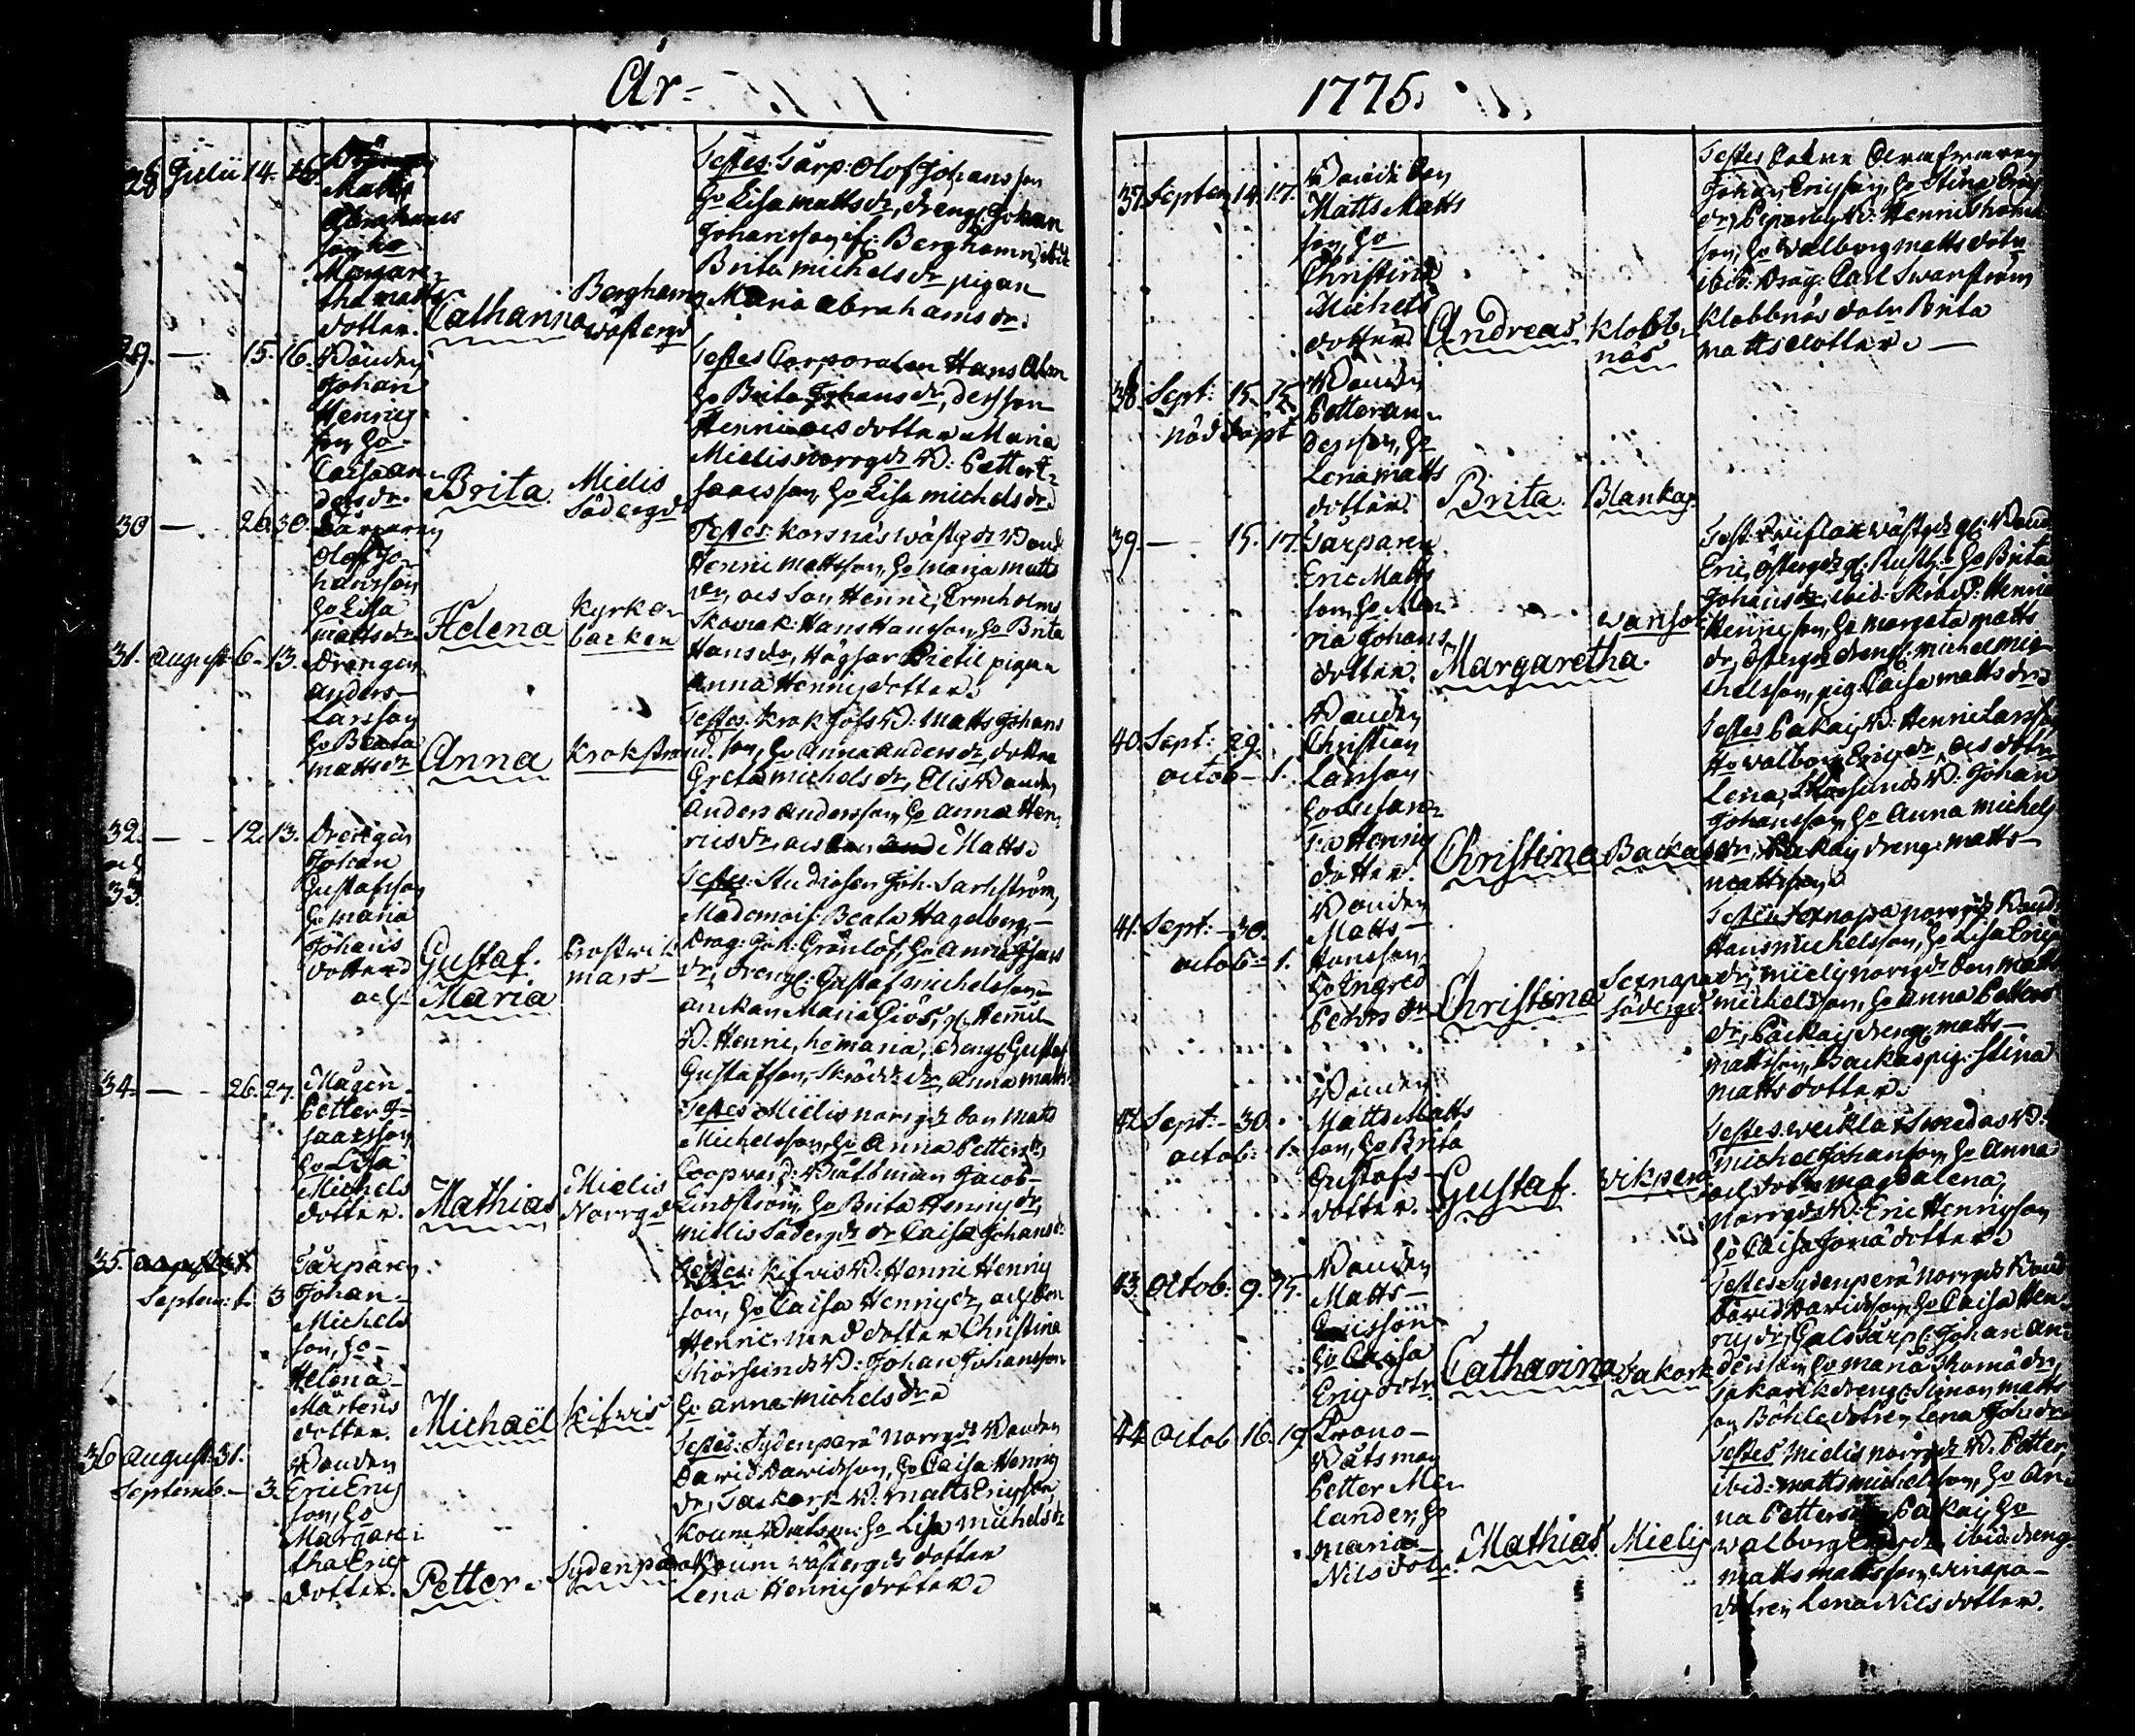 År- 1775.
28 Julii 14. 16.
Matts
Abrahams
son ho
Margare-
tha matts
dotter. Catharina Berghamn
wästergd
Testes: Tårp: Olof Johansson
ho Lisa matts dr, dreng: Johan
Johansson if: Berghamn, ibid
Brita michels dr pigan
Maria abrahams dr.
29. — 15. 16. Bonden
Johan
Henrics
son, ho
Caisa an-
ders dr. Brita. Mielis
Södergd
Testes Corporalen Hans Alm
ho Brita Johans dr, dess son
Henric ocs dotter Maria
Mielis norrgds B: Petter I-
saacsson, ho Lisa michels dr.
30 — 26. 30. Tårparen
Olof Jo-
hansson
ho Lisa
matts dr Helena kyrko-
backen
Testes: korsnäs wästgds Bond
Henric mattsson, ho maria matts
dr, ocs son Henric, Ermholms
Skomak: Hans Hansson, ho Brita
Hans dr, Högsar Bietil pigan
Anna Henrics dotter.
31. August 6. 13. Drengen
Anders
Larsson
ho Beata
matts dr Anna krokstrand.
Testes: krok hofs B: Matts Johans
son, ho Anna anders dr, dotter
Greta michels dr, Elis Bonden
Anders andersson, ho Anna Hen-
rics dr, ocs son Matts.
32. — 12. 13. Drengen
och
33.
Johan
Gustafsson
ho maria
Johans
dotter Gustaf.
och Maria
Prostwik
mars
Testes: Studiosen Joh. Sarlström,
Mademois: Beata Hagelberg,
Drag: Joh: Grönlöf, ho Anna Johans
dr, dreng: Gustaf michelsson
ankan Maria Giös, gl: Hemil
B: Henric, ho maria, dreng Gustaf
Gustafsson, Skrädd: dr, Anna matts
34. — 26. 27. Mågen
Petter I-
saacsson
ho Lisa
Michels
dotter. Mathias Mielis
Norrgd
Testes Mielis norrgds son Matts
Michelsson, ho Anna Petters dr
Coopverd: Båtsman Jacob
Lindström, ho Brita Henrics dr,
mielis Södergds dr Caisa Johans dr.
35.
Septem: 3 Tårparen
Johan
Michels
son, ho
Helena
Mårtens
dotter. Michaël kifwis
Testes: kifvis B: Henric Henrics
son, ho Caisa Henrics dr, och son
Henric, med dotter Christina
Thorsunds B: Johan Johansson
ho anna michels dr.
36 August 31.
Septemb. 3. Bonden
Eric Erics
son, ho
Margare-
tha Erics
dotter. Petter. Sydenperä
Testes: Sydenperä Norrgds Bonden
David Davidsson, ho Caisa Henrics
dr, Tackork B: matts Ericsson
koum Båtsm: ho Lisa michels dr
koum wästergds dotter
Lena Henrics dotter.
37. Septem 14. 17. Bond: son
Matts Matts
son, ho
Christina
Michels
dotter Andreas. klobb-
näs
Testes
Johan Ericsson, ho Stina Erics
dr, B: Henric Thomas
son, ho Walborg matts dotr
ibid: Drag: Carl Swanström
klobbnäs dotr Brita
matts dotter. —
38. Sept: 15. 15. Bonden
nöd döpt
Petter an-
dersson, ho
Lena matts
dotter. Brita. Blankas.
39. — 15. 17. Tårparen
Eric Matts
son, ho Ma-
ria Johans
dotter. Margaretha. warsor
Test: wästgds gl: Bond
Eric, östergds gl: Rusth: ho Brita
Johans dr, ibid: Skrädd: Henric
Henricsson, ho margeta matts
dr, östergds dreng: michel mic-
helsson, pig: Caisa matts dr.
40. Sept: 29. Bonden
octob— 1. Christian
Larsson
ho Susan-
na Henrics
dotter. Christina Backas
Testes Pakais B: Henric Larsson
Ho walborg Erics dr, ocs dotr
Lena, Thorsunds B: Johan
Johansson, ho Anna michels
dr, Pakais dreng: matts
mattsson.
41. Sept: 30. Bonden
octob— 1. Matts
Hansson
ho Ingred
Petters dr Christina Sexnapa
Södergd.
Testes Sexnapa norrgds Bond
Hans michelsson, ho Lisa Erics
dr, mielis norrgds son matts
michelsson, ho Anna Petters
dr, Pakais dreng: matts
mattsson, Backas pig: Stina
matts dotter.
42. Sept:— 30. Bonden
octob: 1. Matts Matts
son, ho Brita
Gustafs
dotter. Gustaf. wikperä
Testes weikla Swedas B:
michel Johansson, ho Anna
och dotr magdalena,
norrgds B: Eric Henricsson
ho Caisa Jona dotter.
43. Octob: 9. 15. Bonden
Matts
Ericsson
ho Caisa
Erics dotr. Catharina Takork
Testes Sydenperä norrgds Bond:
David Davidsson, ho Caisa Hen-
rics dr, Galo tårp: Johan An-
dersson, ho maria Thoma dr,
Takork dreng: Simon matts
son Böhle dotren Lena Joh: dr
44. Octob 16. 19. Krono
Båtsman
Petter Me-
lander, ho
maria
Nils dotr. Mathias. Mielis
Testes Mielis norrgds B. Petter,
ibid: matts michelsson, ho An-
na Petters dr, Pakais ho
walborg Erics dr, ibid: dreng
matts mattsson, winapa
dotren Lena Nils dotter.